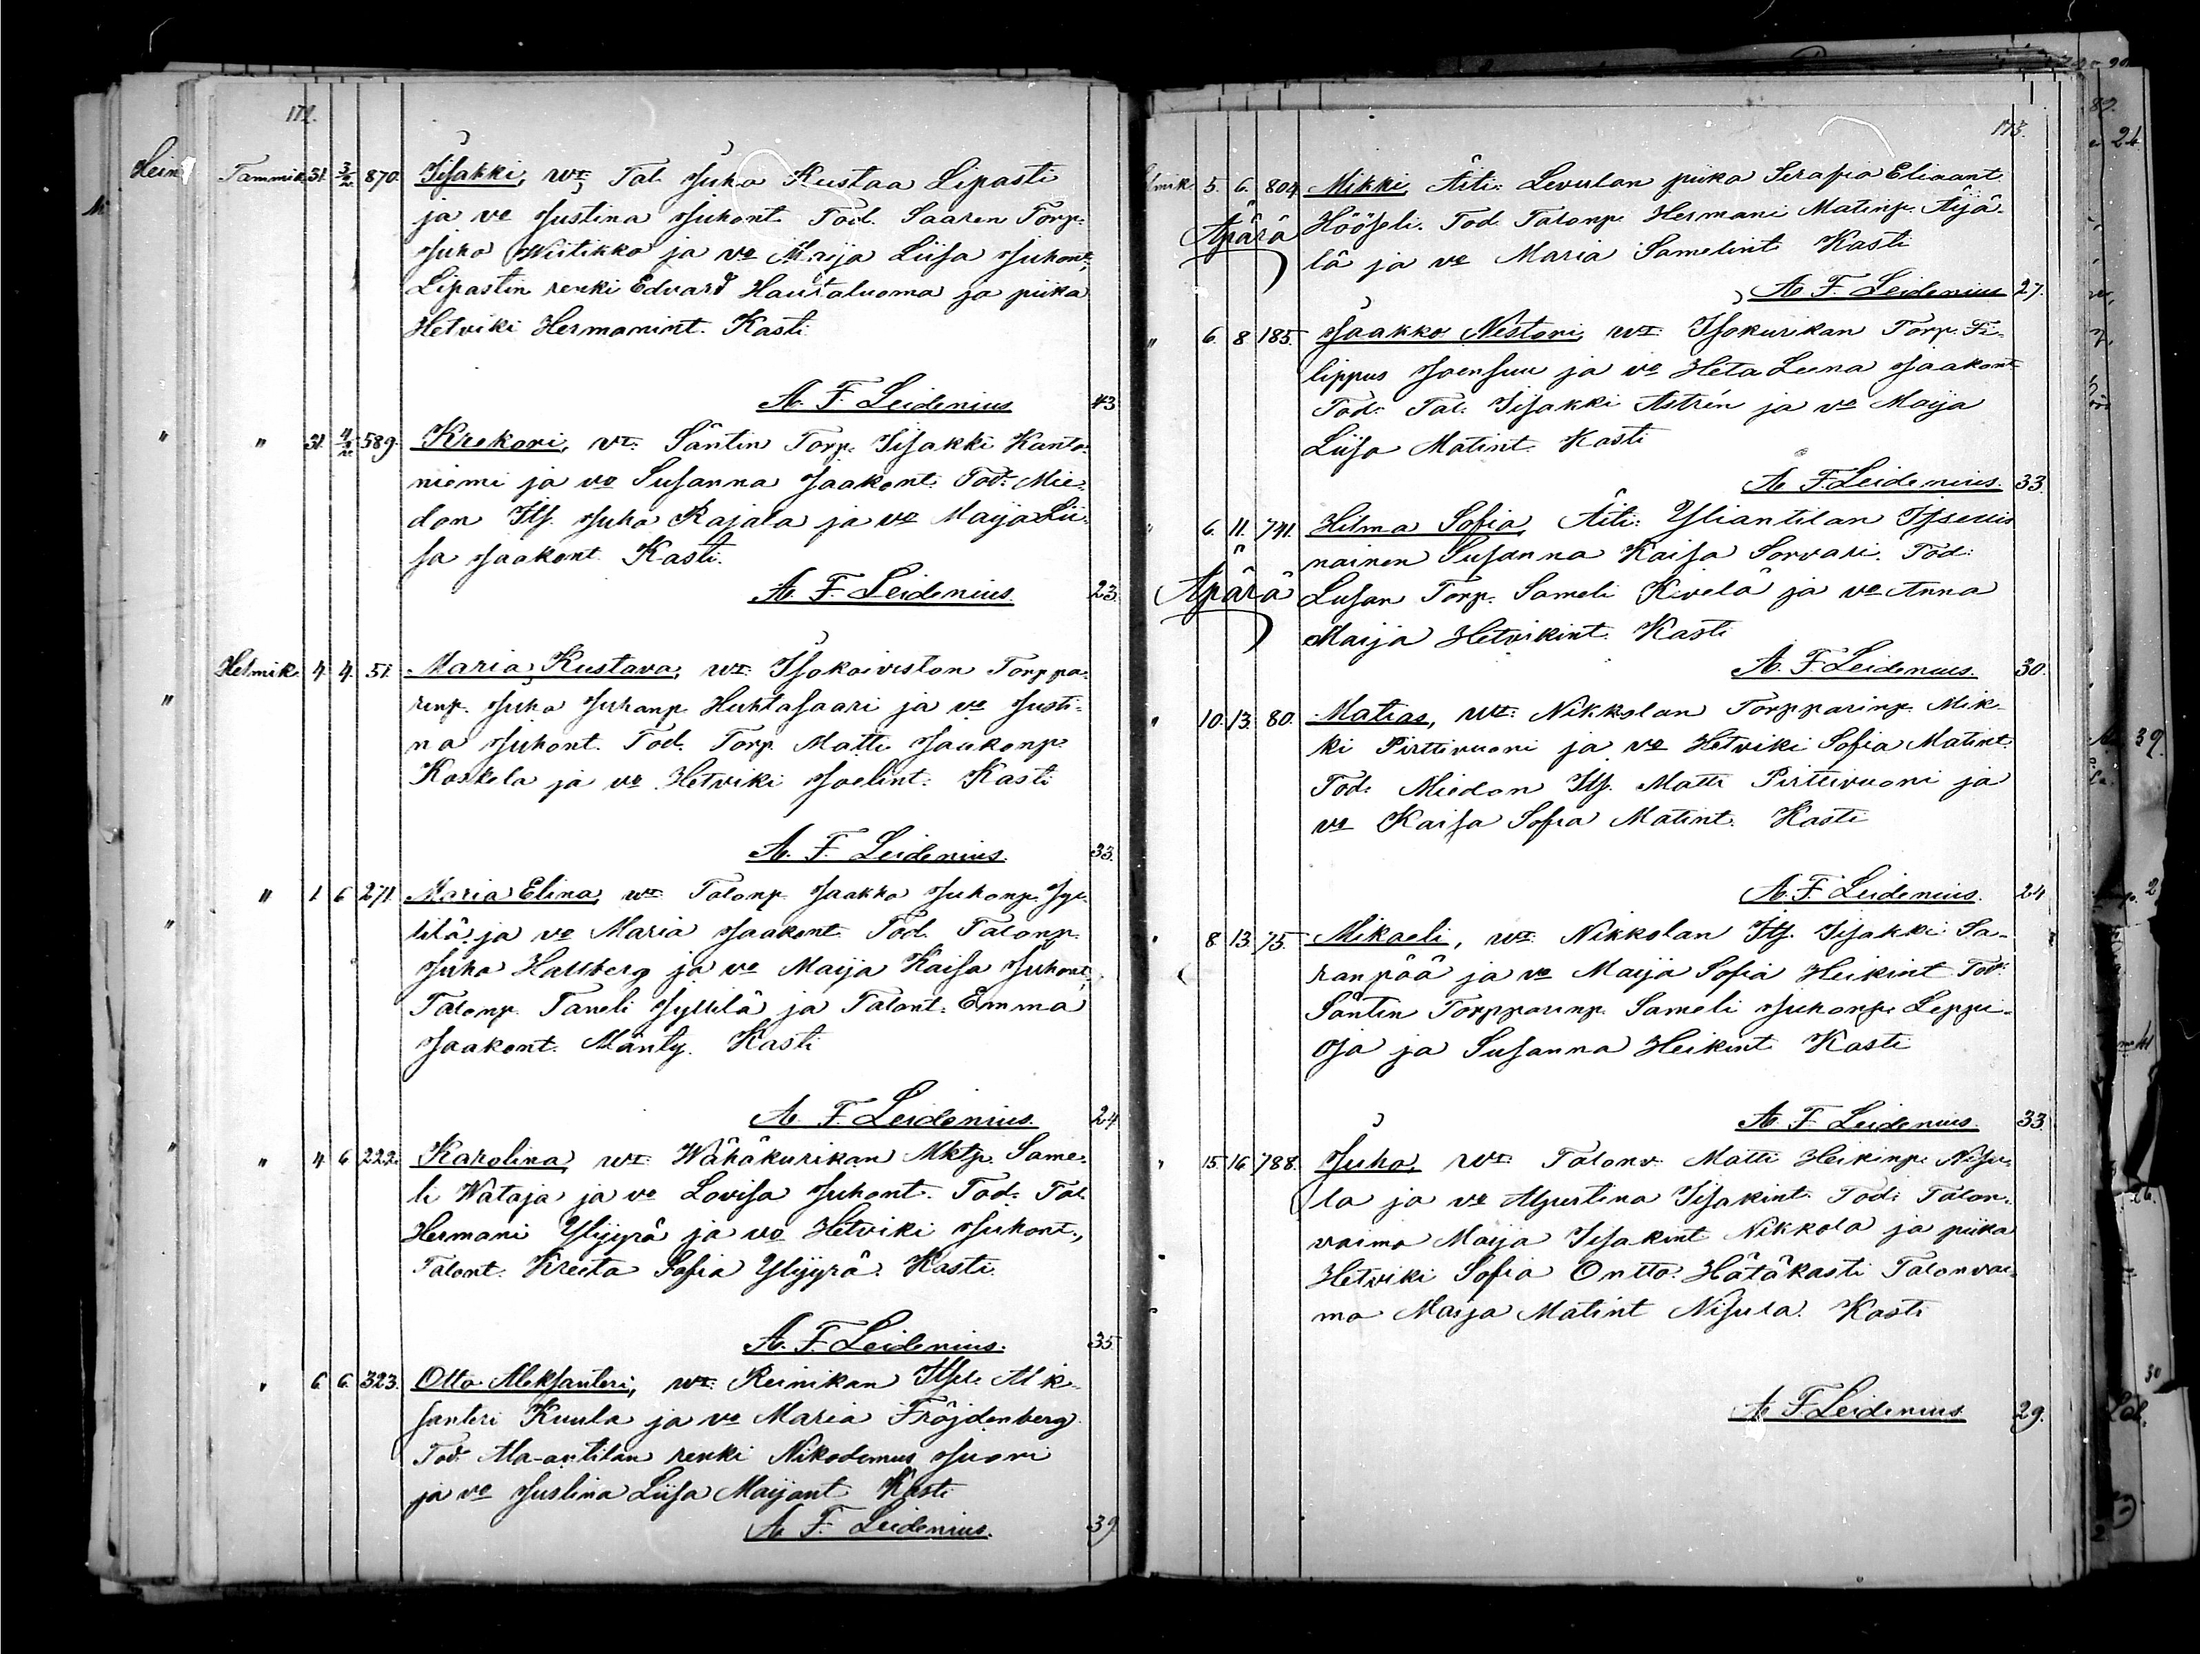 172.
Tammik. 31. 3/2. 870. Iisakki, vt: Tal. Juho Kustaa Lipasti
ja vo Justina Juhont. Tod. Saaren Torp.
Juho Wiitikko ja vo Maija Liisa Juhont.,
Lipastin renki Edvard Hautaluoma ja piika
Hetviki Hermanint. Kasti
A. F. Leidenius 43
" 31. 4/2. 589. Krekori, vt: Säntin Torp. Iisakki Kanto-
niemi ja vo Susanna Jaakont. Tod: Mie-
don Its. Juho Rajala ja vo Maija Lii-
sa Jaakont. Kasti.
A. F. Leidenius. 23.
Helmik. 4. 4. 51. Maria Kustava, vt: Isokoiviston Torppa-
rinp. Juho Juhanp. Huhtasaari ja vo Justi-
na Juhont. Tod. Torp. Matti Jaakonp.
Koskela ja vo Hetviki Joelint. Kasti
A. F. Leidenius. 33.
" 1 6 271. Maria Elina, vt: Talonp. Jaakko Juhonp. Jyl-
lilä ja vo Maria Jaakont. Tod. Talonp.
Juho Hallberg ja vo Maija Kaisa Juhont.,
Talonp. Taneli Jyllilä ja Talont. Emma
Jaakont. Mänty. Kasti
A. F. Leidenius. 24
" 4 6 222. Karolina, vt: Wähäkurikan Mktp. Same-
li Wataja ja vo Lovisa Juhont. Tod. Tal.
Hermani Ylijyrä ja vo Hetviki Juhont.,
Talont. Kreeta Sofia Ylijyrä. Kasti.
A. F. Leidenius. 35
" 6 6. 323. Otto Aleksanteri, vt: Reinikan Itsel. Alek-
santeri Kuula ja vo Maria Fröjdenberg.
Tod. Ala-antilan renki Nikodemus Juoni
ja vo Justina Liisa Maijant. Kasti
A. F. Leidenius. 39
173.
5. 6. 804. Mikki, Äiti: Levulan piika Serafia Eliaant.
Äpärä Hööpeli. Tod. Talonp. Hermani Matinp. Äijä-
lä ja vo Maria Samelint. Kasti
A. F. Leidenius 27.
" 6. 8 185. Jaakko Nestori, vt: Isokurikan Torp. Fi-
lippus Joensuu ja vo Heta Leena Jaakont.
Tod: Tal. Iisakki Astrén ja vo Maija
Liisa Matint. Kasti
A. F. Leidenius. 33.
" 6. 11. 741. Hilma Sofia, Äiti: Yliantilan Itsellis
nainen Susanna Kaisa Sorvari. Tod:
Äpärä Lusan Torp. Sameli Kivelä ja vo Anna
Maija Hetvikint. Kasti
A. F. Leidenius. 30.
" 10. 13. 80. Matias, vt: Nikkolan Torpparinp. Mik-
ki Pirttivuori ja vo Hetviki Sofia Matint.
Tod: Miedon Its. Matti Pirttivuori ja
vo Kaisa Sofia Matint. Kasti
A. F. Leidenius. 24
" 8. 13. 75. Mikaeli, vt: Nikkolan Its. Iisakki Sa-
ranpää ja vo Maija Sofia Heikint. Tod:
Säntin Torpparinp. Sameli Juhonp. Leppi-
oja ja Susanna Heikint. Kasti
A. F. Leidenius. 33.
" 15. 16. 788. Juho, vt: Talonv. Matti Heikinp. Nisu-
la ja vo Agustina Iisakint. Tod: Talon.
vaimo Maija Iisakint. Nikkola ja piika
Hetviki Sofia Ontto. Hätäkasti Talonvai-
mo Maija Matint. Nisula. Kasti
A. F. Leidenius 29.